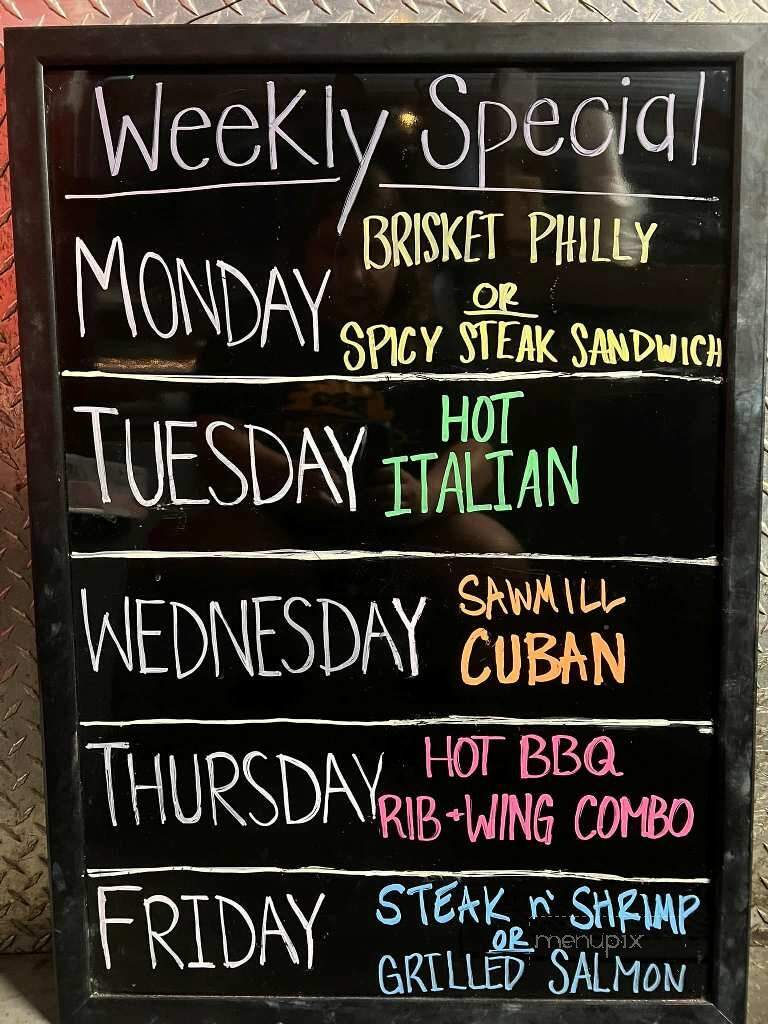 Weekly Special
MONDAY
BRISKET PHILLY
OR
SPICY STEAK SANDWICH
TUESDAY
HOT
ITALIAN
WEDNESDAY
SAWMILL
CUBAN
THURSDAY
HOT BBQ
RIB+WING COMBO
FRIDAY
STEAK n' SHRIMP
OR
menupix
GRILLED SALMON